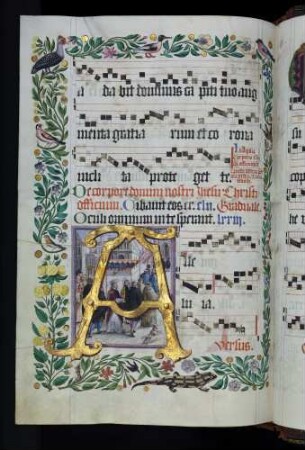 a da bit dominus ca piti tuo aug
menta gratia rum et co rona
incli ta prote get te
De corpore domini nostri Jhesu Christi
officium. Cibauit eos cc. cln. Graduale.
Oculi omnium in te sperant. lxxiii.
A lle
lu ia.
Versus.